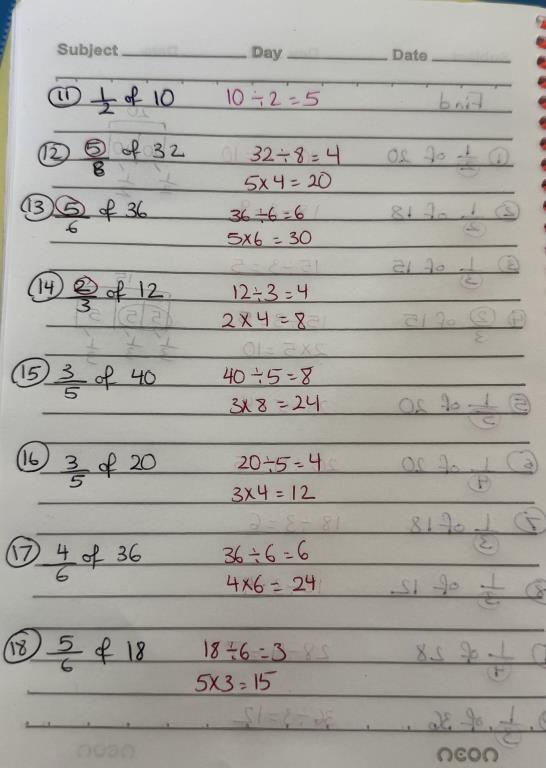 Subject Day Date
11 1/2 of 10 10÷2=5
12 5/8 of 32 32÷8=4
5x4=20
13 5/6 of 36 36÷6=6
5x6=30
14 2/3 of 12 12÷3=4
2x4=8
15 3/5 of 40 40÷5=8
3x8=24
16 3/5 of 20 20÷5=4
3x4=12
17 4/6 of 36 36÷6=6
4x6=24
18 5/6 of 18 18÷6=3
5x3=15
neon